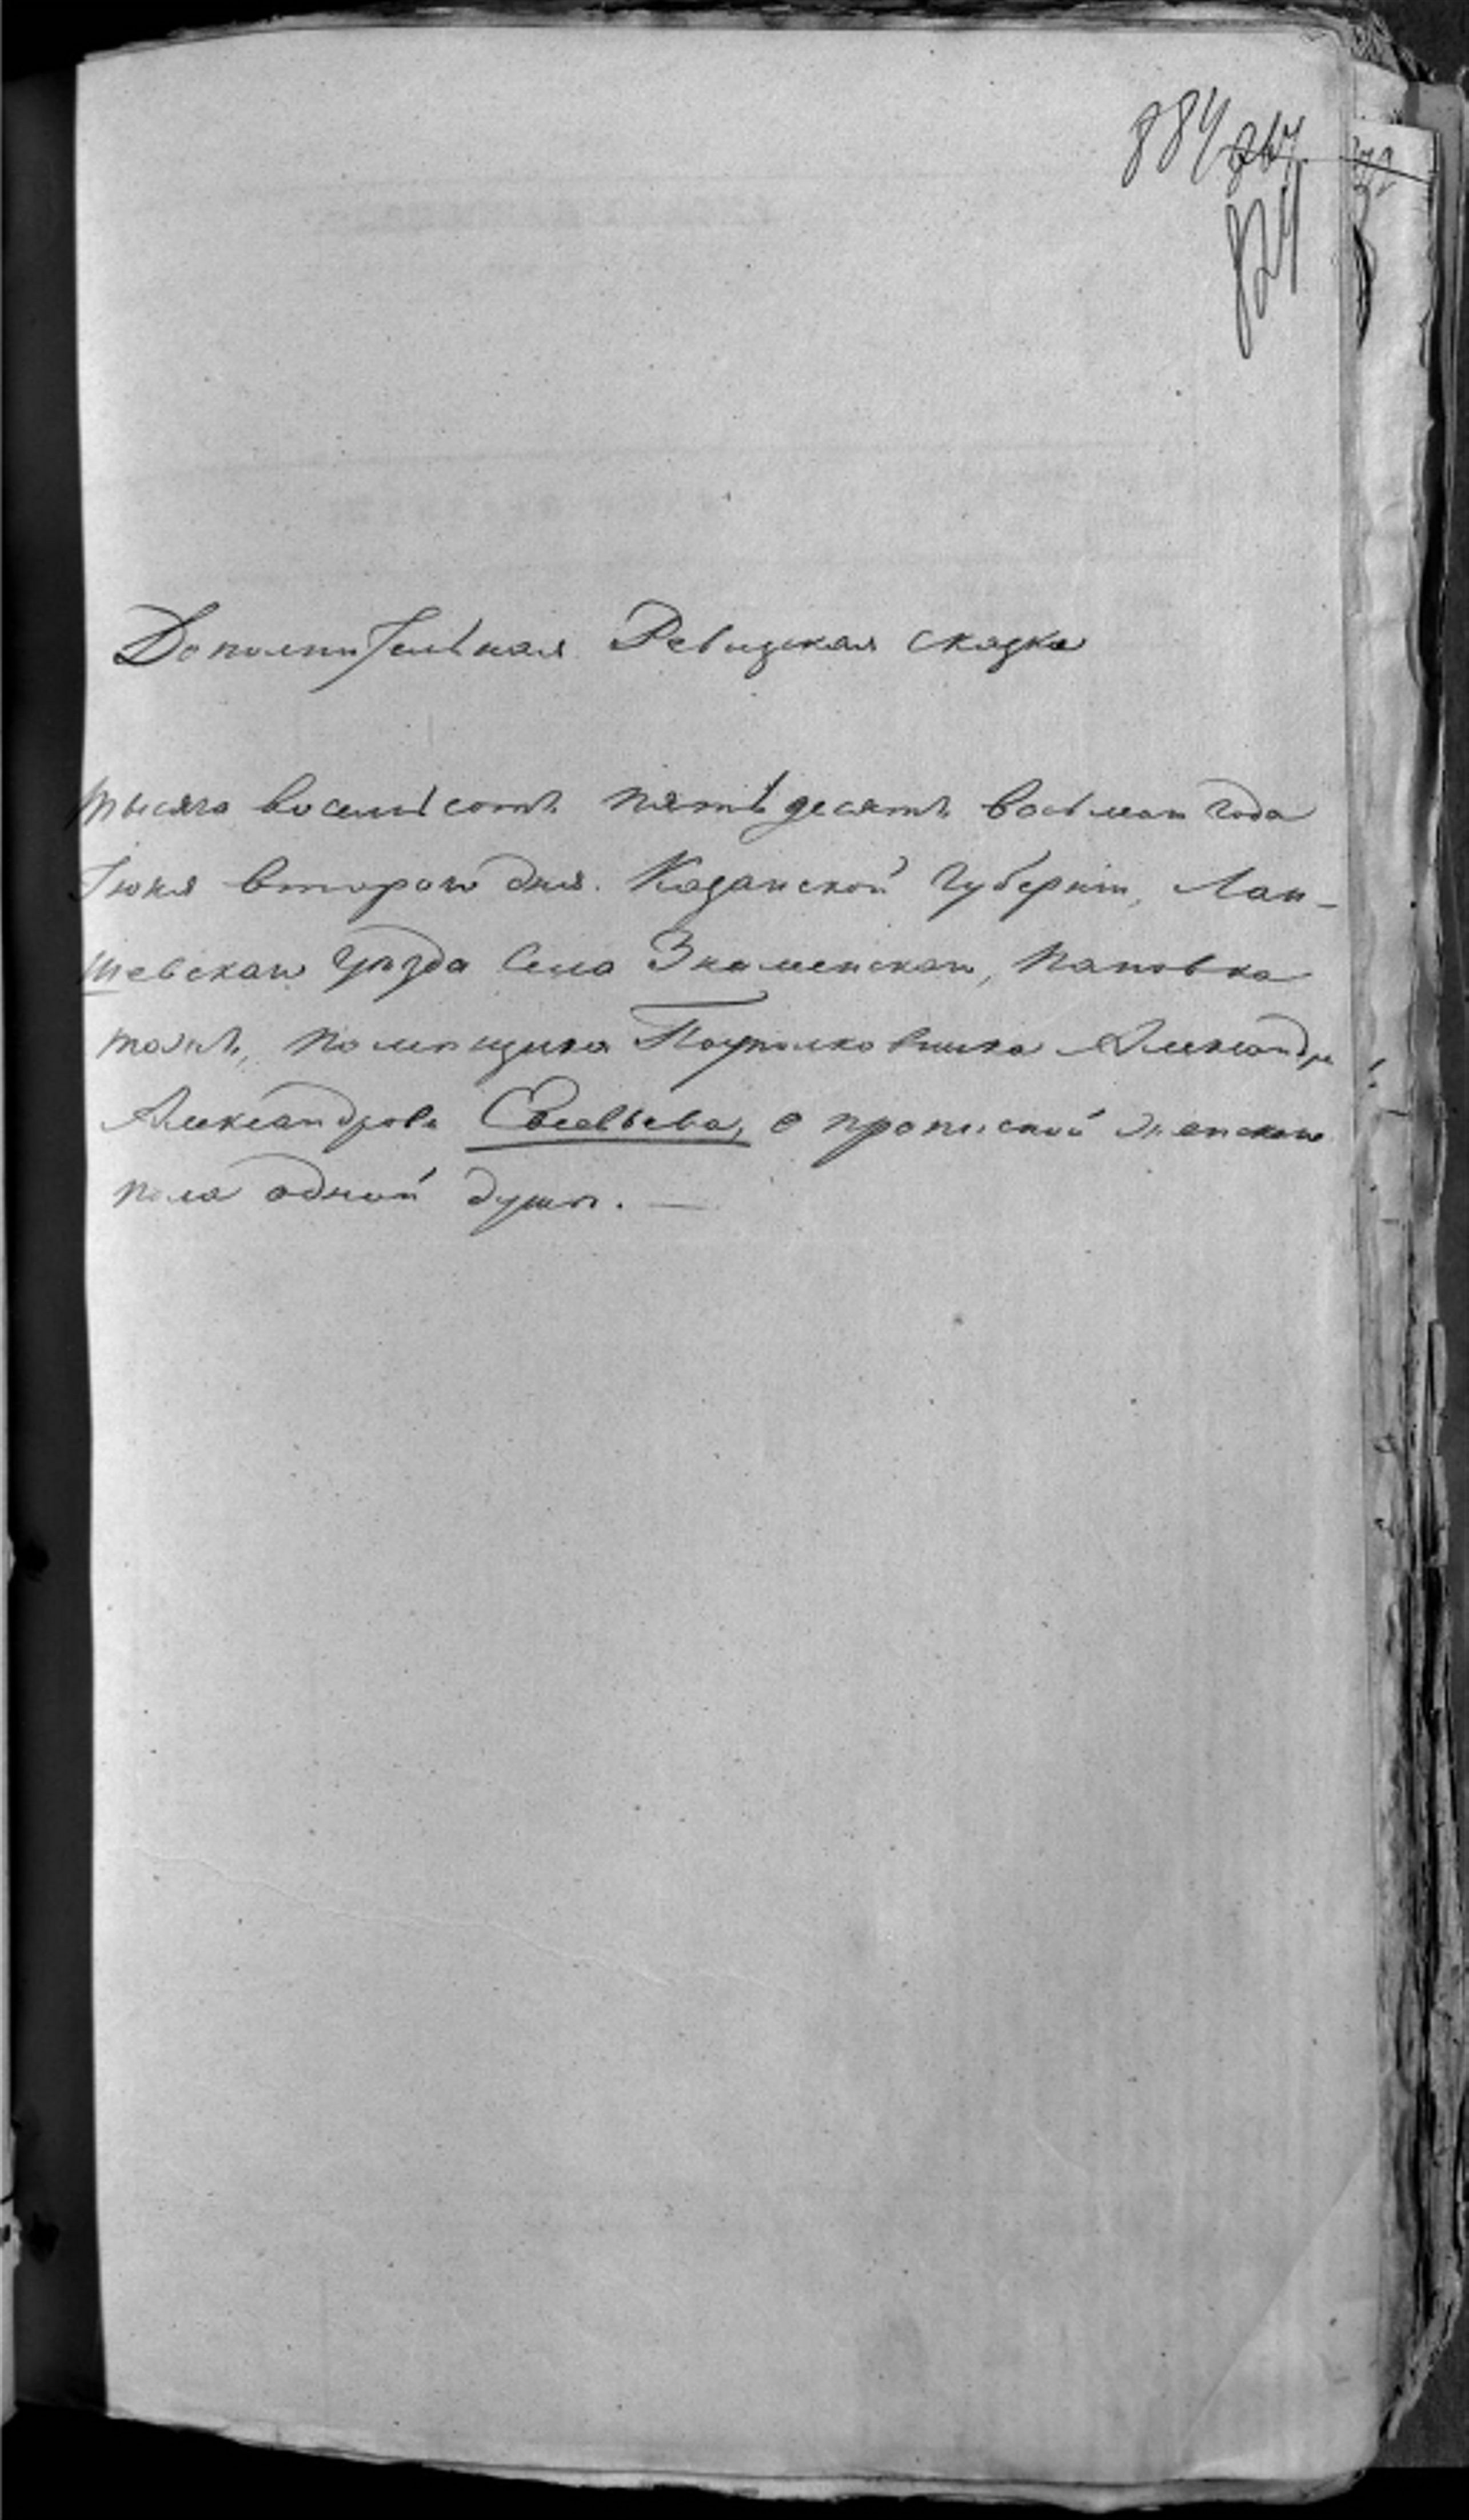 884 864
824
Дополнительная Ревизская сказка
тысяча восемьсотъ пятьдесятъ восьмаго года
Іюня втораго дня. Казанской Губерніи, Лаи-
шевскаго Уѣзда Села Знаменскаго, Пановка
тожъ, помѣщика Подполковника Александра
Александрова Есаевьева, о прописной женскаго
пола одной душѣ. —